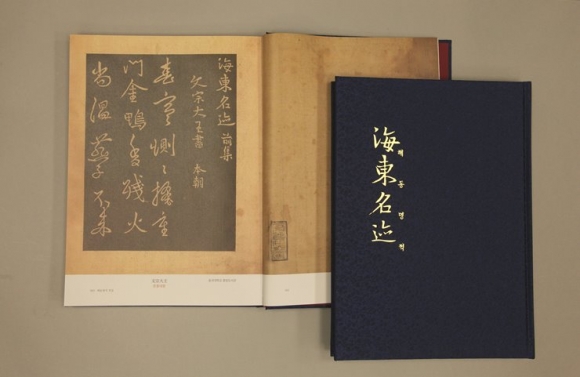 海東名迹前集
文宗大王書 本朝
春寒惻〻掩重
門金鴨香殘火
尚溫燕子不來
海東名迹
해동명적